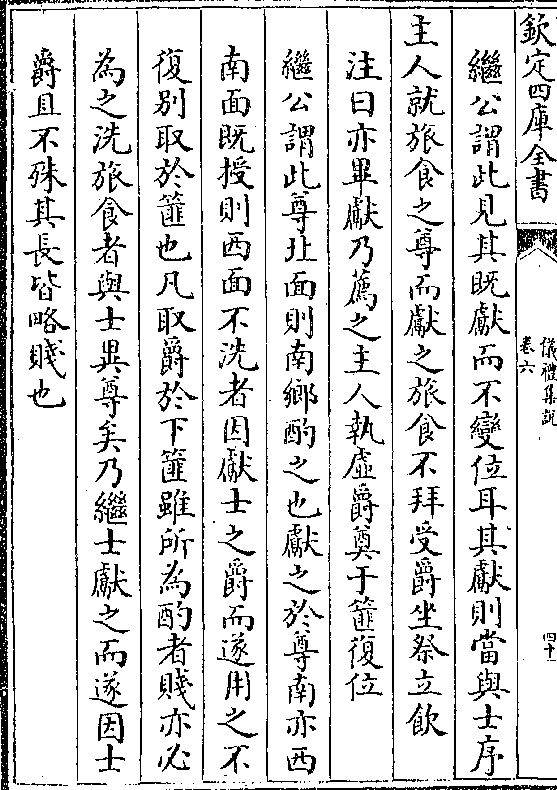 欽定四庫全書
儀禮集說
卷六
四十一
繼公謂此見其既獻而不變位耳其獻則當與士序
主人就旅食之尊而獻之旅食不拜受爵坐祭立飲
注曰亦畢獻乃薦之主人執虛爵奠于篚復位
繼公謂此尊北面則南鄉酌之也獻之於尊南亦西
南面既授則西面不洗者因獻士之爵而遂用之不
復別取於篚也凡取爵於下篚雖所為酌者賤亦必
為之洗旅食者與士異尊矣乃繼士獻之而遂因士
爵且不殊其長皆略賤也